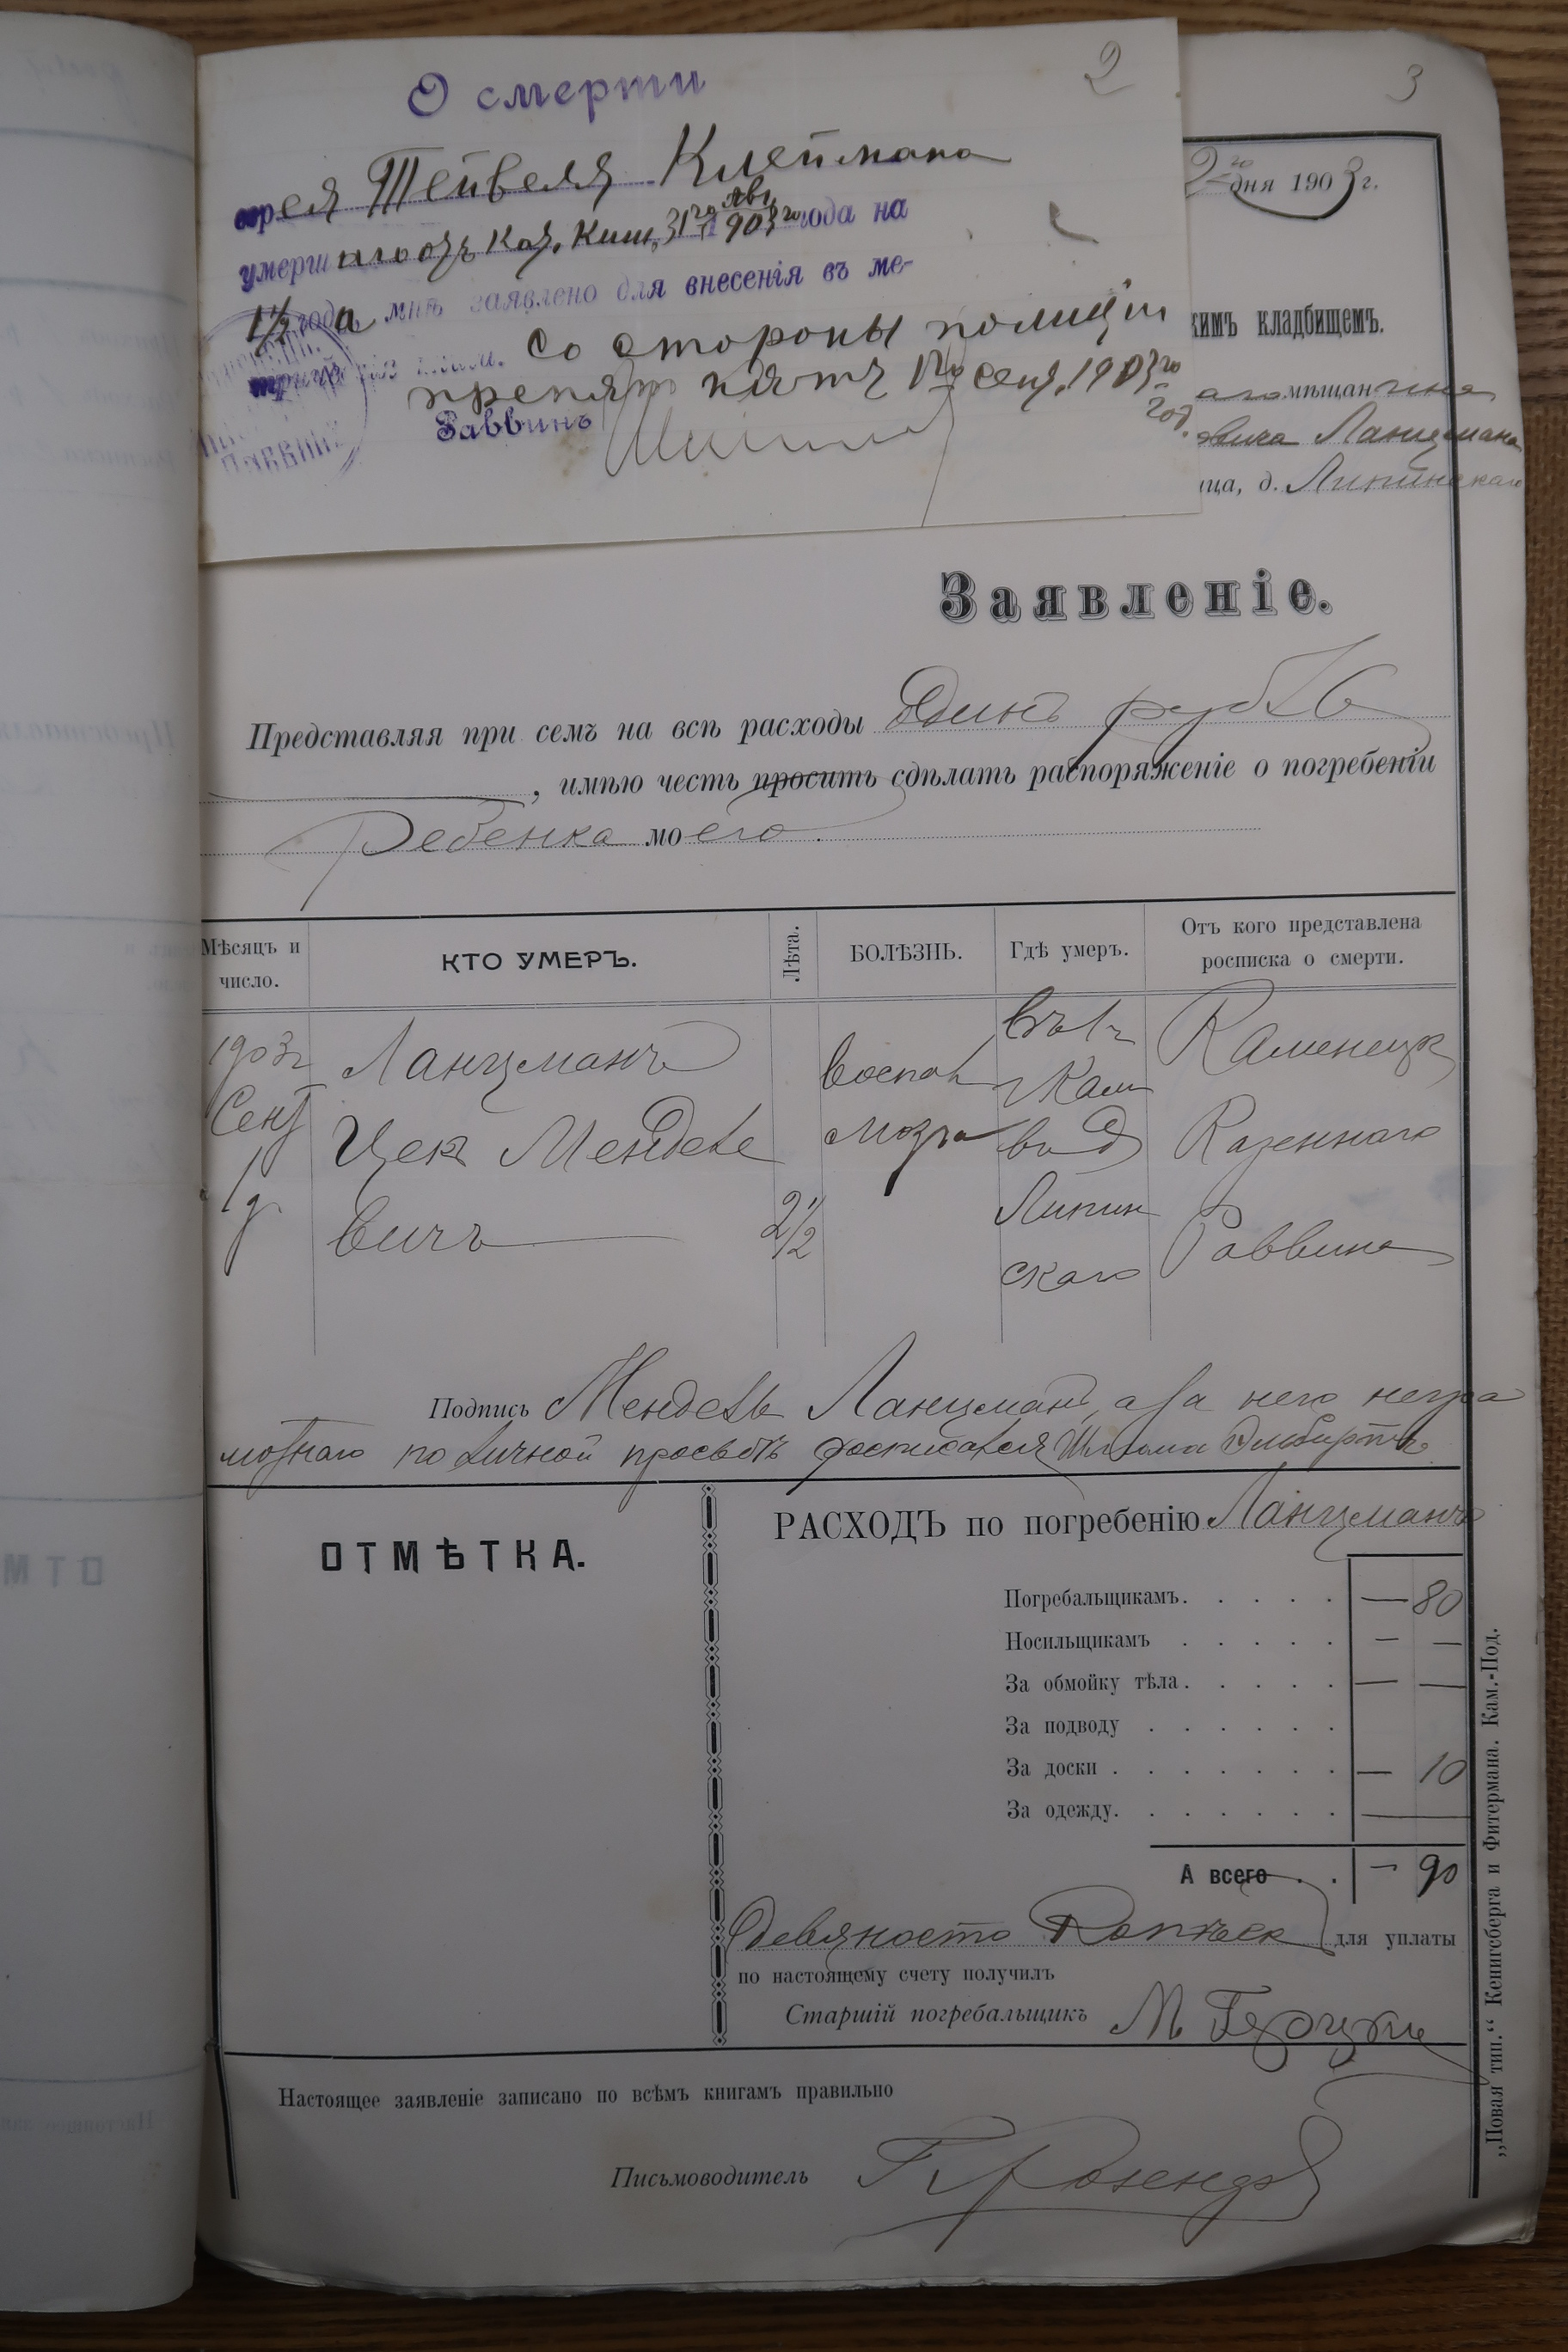 2
О смерти
еврея Тейвеля Клеймана
умершаго отъ Каз. Киш. 31го Авг 1903го года на
1½ года мнѣ заявлено для внесенія въ ме-
трическія книги. Со стороны полиціи
препят нѣтъ 1го Сент. 1903го
год.
Раввинъ
3
2го дня 1903 г.
кимъ кладбищемъ.
аго мѣщанина
овича Ланцмана
ица, д. Липинскаго
Заявленіе.
Представляя при семъ на всѣ расходы Одинъ рубль
, имѣю честь просить сдѣлать распоряженіе о погребеніи
Ребенка моего.
Мѣсяцъ и число. КТО УМЕРЪ. Лѣта. БОЛѢЗНЬ. Гдѣ умеръ. Отъ кого представлена росписка о смерти.
1903г Ланцманъ Воспал въ г. Каменецк
Сент Мендель мозга Кам Казеннаго
1 д вичъ 2½ въ д Липинскаго Раввина
Подпись Мендель Ланцманъ, а за него негра
мотнаго по личной просьбѣ росписался Шлёма
ОТМѢТКА.
РАСХОДЪ по погребенію Ланцманъ
Погребальщикамъ. . . . . — 80
Носильщикамъ . . . . . — —
За обмойку тѣла. . . . . — —
За подводу . . . . . .
За доски . . . . . . . — 10
За одежду. . . . . . . —
А всего . . — 90
Девяносто Копѣекъ для уплаты
по настоящему счету получилъ
Старшій погребальщикъ М.
Настоящее заявленіе записано по всѣмъ книгамъ правильно
Письмоводитель
„Новая тип.“ Кенигсберга и Фитермана. Кам.-Под.